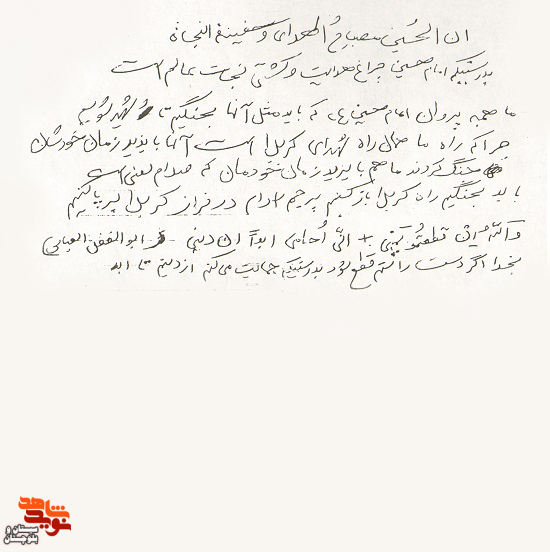 ان الحسین مصباح الهدای و سفینة النجاة
بدرستیکه امام حسین چراغ هدایت و کشتی نجات عالم است
ما همه پیروان امام حسین ع که باید مثل آنها بجنگیم تا شهید شویم
چرا که راه ما همان راه شهدای کربلا است آنها با یزید زمان خودشان
جنگ کردند ما هم با یزید زمان خودمان که صدام لعنی است
باید بجنگیم راه کربلا باز کنیم پرچم اسلام در فراز کربلا برپا کنیم
والله ان قطعتمو یمینی + انی اُحامی ابداً ان دینی ابوالفضل العباس
بخدا اگر دست راستم قطع شود بدرستیکه حمایت می‌کنم از دینم تا ابد
نوید شاهد
سیستان و بلوچستان